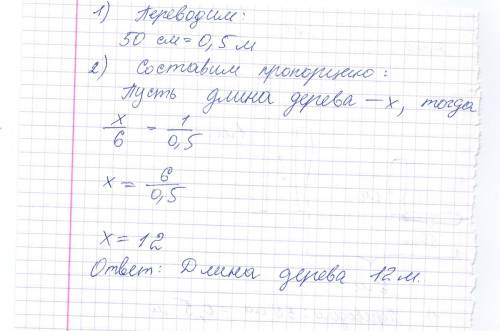 1) Переводим:
50 см = 0,5 м
2) Составим пропорцию:
Пусть длина дерева — x, тогда
x/6 = 1/0,5
x = 6/0,5
x = 12
Ответ: Длина дерева 12 м.